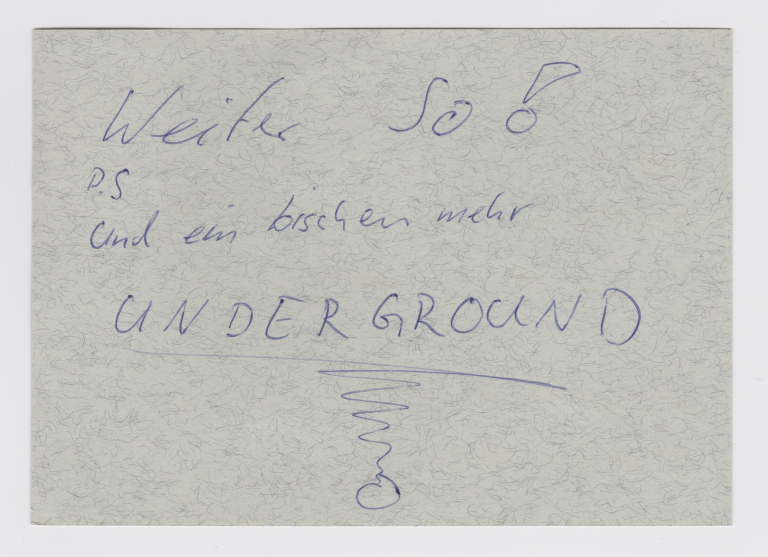 Weiter So!
P.S
Und ein bischen mehr
UNDERGROUND